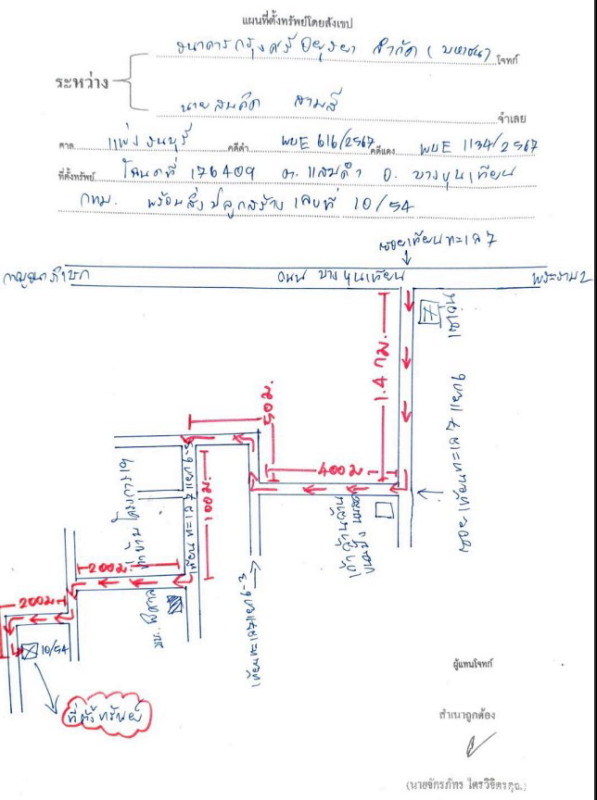 แผนที่ตั้งทรัพย์โดยสังเขป
ธนาคารกรุงศรีอยุธยา จำกัด (มหาชน) โจทก์
ระหว่าง
นายสมคิด สามสี จำเลย
ศาล แพ่งธนบุรี คดีดำ ผบE 616/2567 คดีแดง ผบE 1134/2567
ที่ตั้งทรัพย์ โฉนดที่ 176409 ต. แสมดำ อ. บางขุนเทียน
กทม. พร้อมสิ่งปลูกสร้าง เลขที่ 10/54
ซอยเทียนทะเล 7
กาญจนาภิเษก
ถนน บางขุนเทียน
พระราม 2
1.4 กม.
50 ม.
400 ม.
100 ม.
200 ม.
200 ม.
ซอยเทียนทะเล 7 แยก 6
เทียนทะเล 7 แยก 6-3
10/54
ที่ตั้งทรัพย์
ผู้แทนโจทก์
สำเนาถูกต้อง